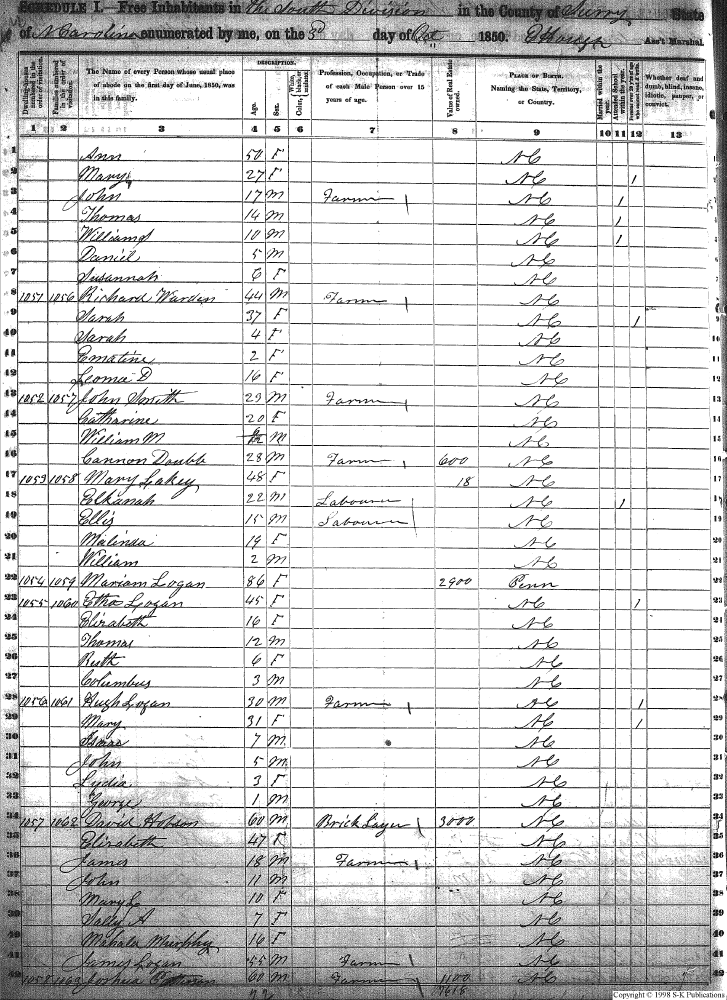 SCHEDULE I.—Free Inhabitants in the South Division in the County of Surry State
of N Carolina enumerated by me, on the 3rd day of Oct 1850. Ass't Marshal.
Dwelling-houses numbered in the order of visitation.
Families numbered in the order of visitation.
The Name of every Person whose usual place of abode on the first day of June, 1850, was in this family.
DESCRIPTION.
Age.
Sex.
White, black, or mulatto.
Color,
Profession, Occupation, or Trade of each Male Person over 15 years of age.
Value of Real Estate owned.
PLACE OF BIRTH. Naming the State, Territory, or Country.
Married within the year.
Attended School within the year.
Whether deaf and dumb, blind, insane, idiotic, pauper, or convict.
1 2 3 4 5 6 7 8 9 10 11 12 13
1 Ann 50 F NC
2 Mary 27 F NC 1
3 John 17 M Farmer NC 1
4 Thomas 14 M NC 1
5 William 10 M NC 1
6 Daniel 5 M NC
7 Susannah 6 F NC
8 1051 1056 Richard Warden 44 M Farmer NC
9 Sarah 37 F NC 1
10 Sarah 4 F NC
11 Ematine 2 F NC
12 Leoma D 16 F NC
13 1052 1057 John Smith 23 M Farmer NC
14 Catharine 20 F NC
15 William M M NC
16 Cannon Doubb 28 M Farm 600 NC
17 1053 1058 Mary Lakey 48 F 18 NC
18 Elkanah 22 M Labourer NC 1
19 Ellis 15 M Labourer NC
20 Malinda 19 F NC
21 William 2 M NC
22 1054 1059 Mariam Logan 86 F 2900 Penn
23 1055 1060 Logan 45 F NC 1
24 Elizabeth 16 F NC
25 Thomas 12 M NC
26 Ruth 6 F NC
27 Columbus 3 M NC
28 1056 1061 Hugh Logan 30 M Farmer NC 1
29 Mary 31 F NC 1
30 7 M NC
31 John 5 M NC
32 Lydia 3 F NC
33 George 1 M NC
34 1057 1062 David Hobson 60 M Brick Layer 3000 NC
35 Elizabeth 47 F NC
36 James 18 M Farmer NC
37 John 11 M NC
38 Mary L 10 F NC
39 Sally A 7 F NC
40 Mahala Murphy 16 F NC
41 James Logan 55 M Farm NC
42 1058 1063 Joshua 60 M Farmer 1100 NC
Copyright © 1998 S-K Publications